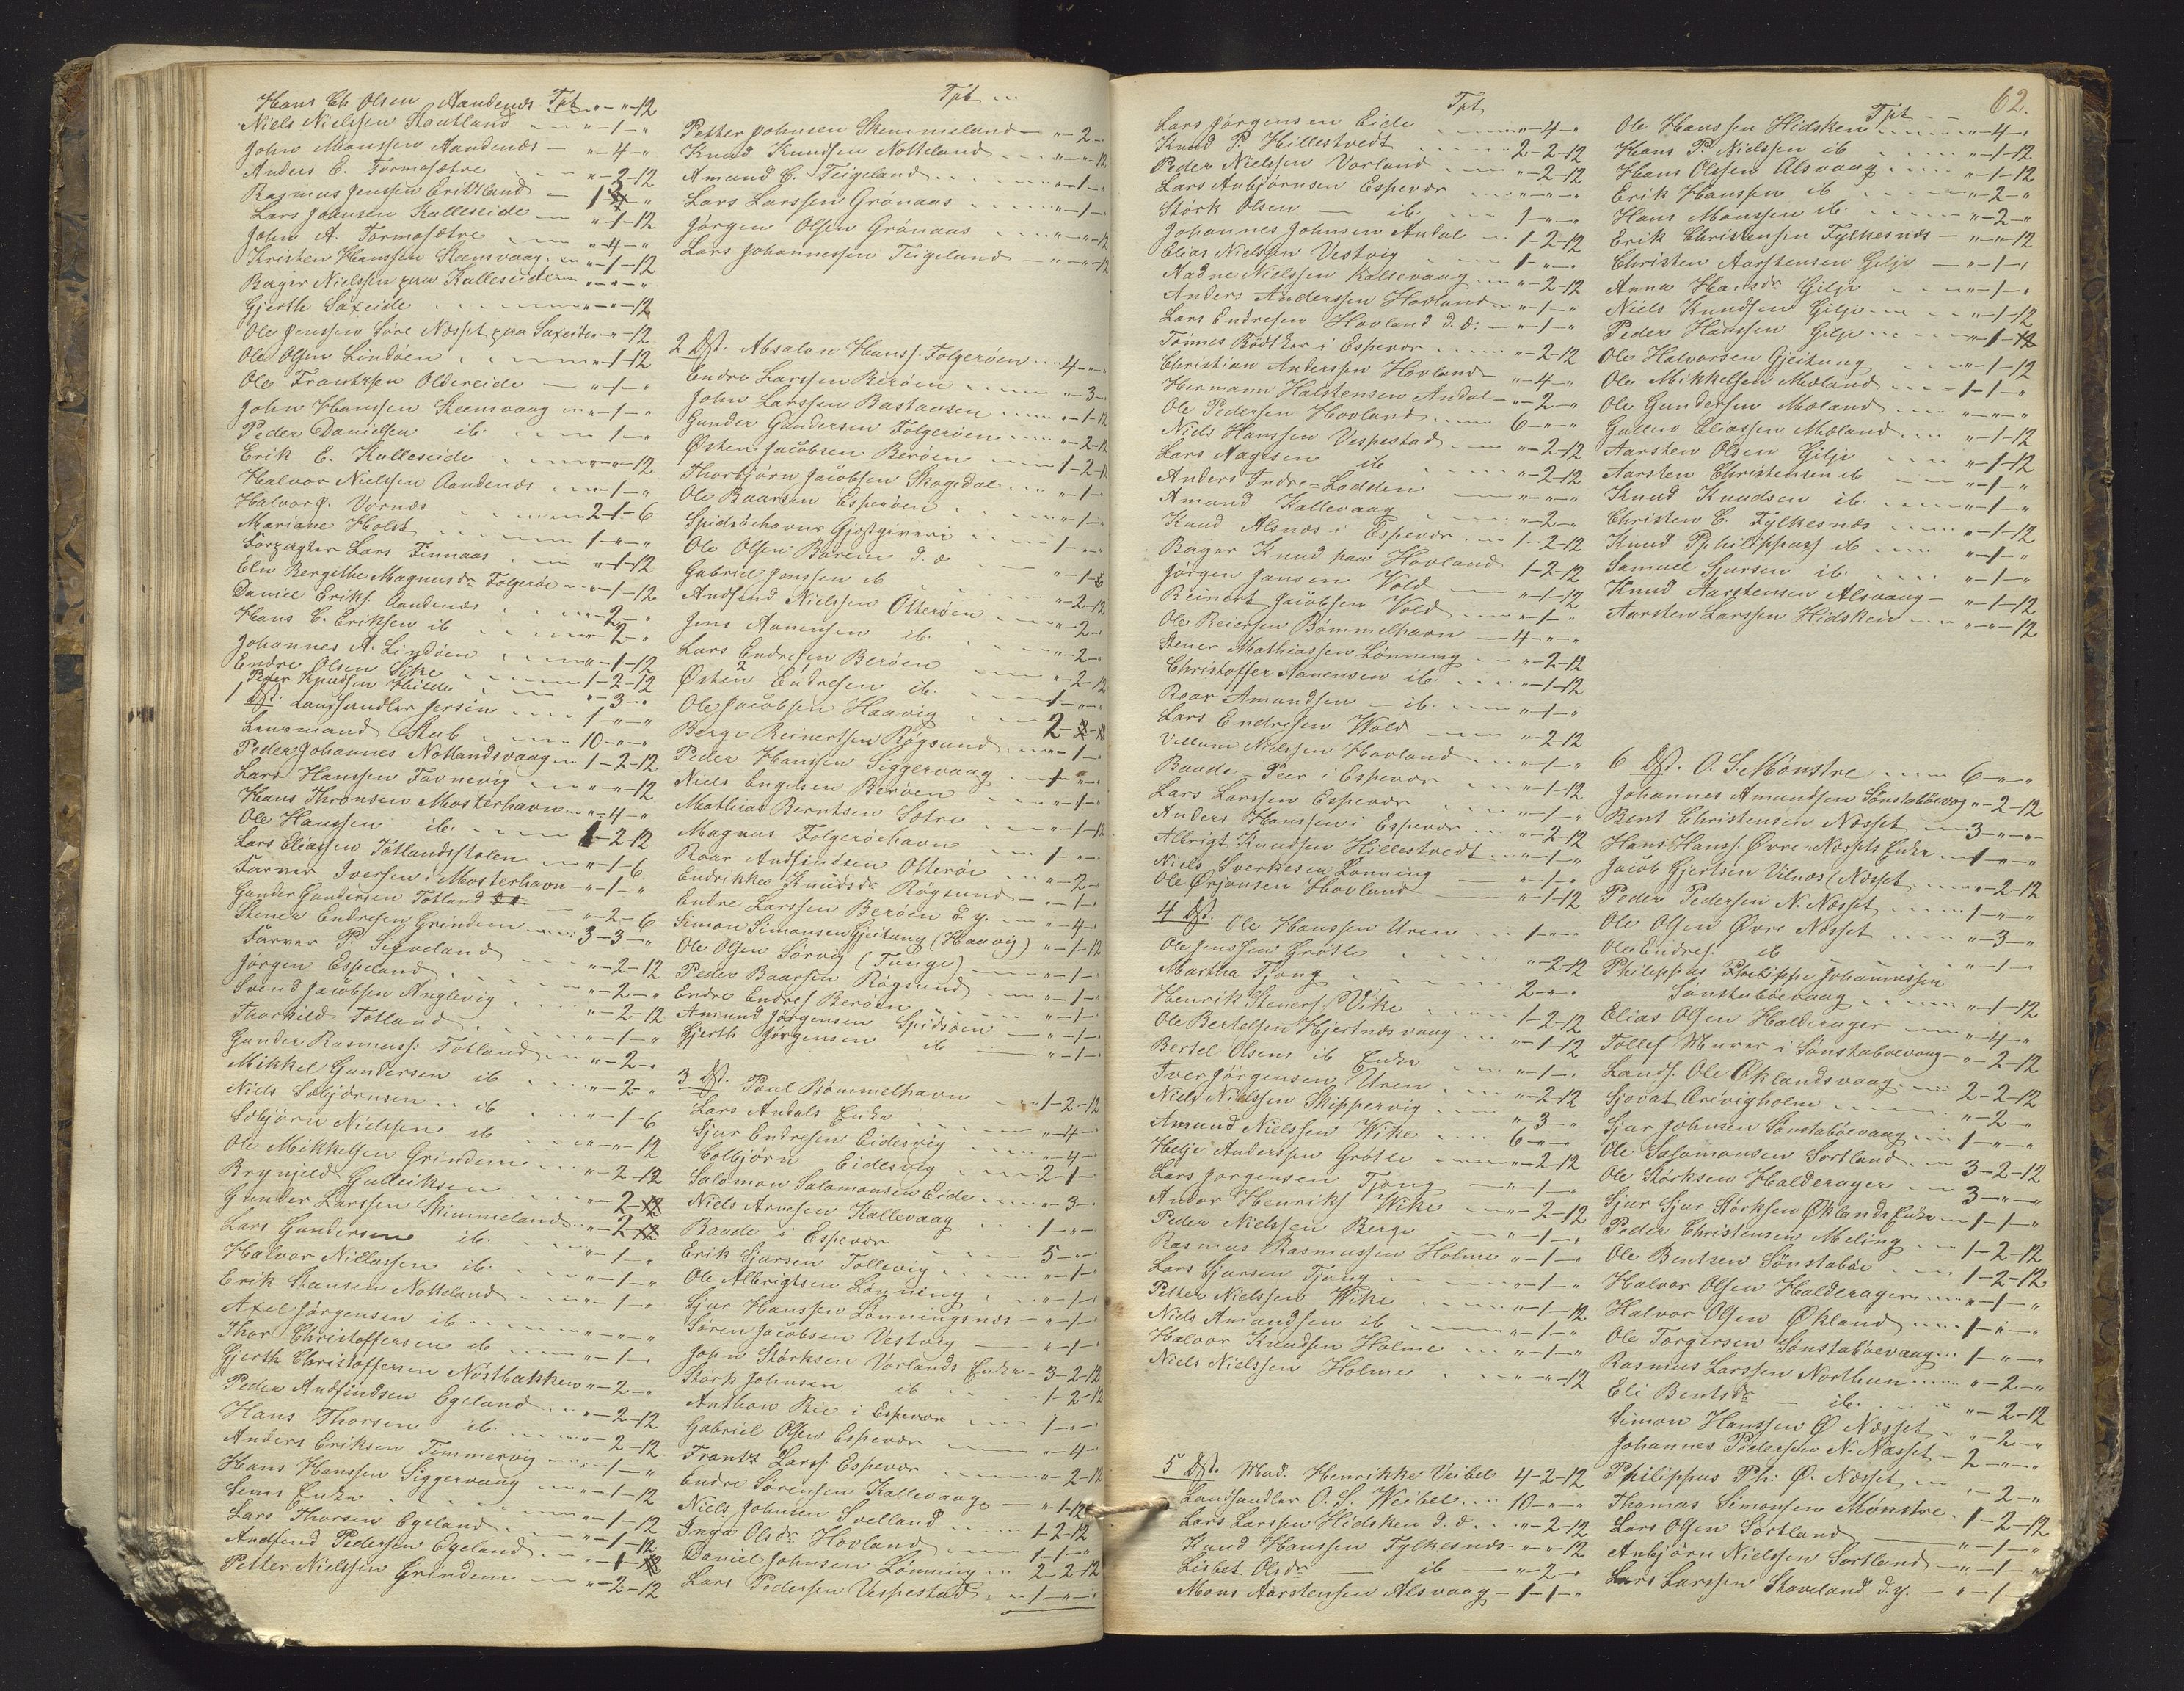 Hans Ch Olsen Aandenæs Tpt „-„-12
Niels Nielsen Stoutland „-1-„
John Monssen Aandenæs - „-4-„
Anders E. Tormosætre „-2-12
Rasmus Jenssen Eritzland - 1
Lars Johnsen Kalleseide „-1-12
John A. Tormosætre „-4-„
Kristen Hanssen Steensvaag „-1-12
Borger Nielssen paa Kalleseide „-„-„
Gjerth Saxeide „-„-12
Ole Jenssen Søre Næsset paa Saxeide „-„-12
Ole Olsen Lindøen „-1-12
Ole Frantzsen Oldereide - „-1-„
John Hanssen Steensvaag „-1-„
Peder Danielsen ib. „-1-„
Erik E. Kalleseide „-„-12
Halvor Nielssen Aandenæs „-1-„
Halvor J. Vornæs 2-1-6
Mariane Holst 1-„-„
Forpagter Lars Finnaas „-1-12
Elen Bergithe Magnusdr Folgerøe „-1-12
Daniel Eriks. Aandenæs „-2-„
Hans C. Eriksen ib „-2-„
Johannes A. Lindøen „-1-12
Endre Olsen Sike 1-2-12
Peder Knudsen Hilde „-3-„
1 Dst. Landhandler Jersin 1-„-„
Lensmand Stub 10-„-„
Peder Johannes Notlandsvaag 1-2-12
Lars Hanssen Favnevig „-„-12
Hans Thronsen Mosterhavn „-4-„
Ole Hanssen ib. 1-2-12
Lars Eliassen Totlandsstølen „-1-6
Farver Iversen i Mosterhavn „-1-„
Gunder Gundersen Totland „-2-6
Stener Endresen Grindem 3-3-„
Farver P. Sigveland „-2-12
Jørgen Espeland „-2-„
Svend Jacobsen Anglevig „-2-12
Thorkild Totland „-1-„
Gunder Rasmuss: Totland „-2-„
Mikkel Gundersen ib „-2-„
Niels Sæbjørnsen ib „-1-6
Sæbjørn Nielssen ib „-„-12
Ole Mikkelsen Grindem „-2-12
Brynjeld Gulleiksen „-2-12
Gunder Larssen Skimmeland „-2-12
Lars Gundersen ib. „-1-„
Halvor Niclassen ib. „-1-„
Erik Hansen Notteland „-1-„
Axel Jørgensen ib „-„-„
Thor Christoffersen ib „-1-„
Gjerth Christoffersen Nøstbakken „-2-„
Peder Andfindsen Egeland „-2-12
Hans Thorsen ib. „-2-12
Anders Eriksen Timmervig „-1-„
Hans Hanssen Siggervaag „-1-12
Sems Enke „-1-12
Lars Thorsen Egeland „-1-12
Andfind Pedersen Egeland „-1-12
Petter Nielssen Grindem „-2-12
Tpt
Petter Johnsen Skemmeland „-2-
Knud Knudsen Notteland „-„-12
Amund C. Teigeland „-1-
Lars Larssen Grønaas „-1-
Jørgen Olsen Grønaas „-„-12
Lars Johannessen Teigeland „-„-12
2 Dst. Absalon Hanss. Folgerøen „-4-„
Endre Larssen Berøen „-3-
John Larssen Bastaasen „-1-12
Gunder Gundersen Folgerøen „-2-12
Østen Jacobsen Berøen 1-2-12
Thorbjørn Jacobsen Skogsdal „-1-
Ole Baarsen Esperøen „-1-
Spidsøehavns Gjæstgiveri 1-„-
Ole Olsen Barem d. æ „-1-6
Gabriel Jenssen ib „-2-12
Andfind Nielssen Otterøen „-2-
Jens Aanensen ib. „-2-
Lars Endresen Berøen „-2-12
Østen Endresen ib. 1-„-
Ole Jacobsen Haavig 2
Berge Reinertsen Røgsund „-1-
Peder Hanssen Siggervaag „-1-
Niels Engelsen Berøen „-1-
Mathias Berntsen Sætre „-1-12
Magnus Folgerøehavn 1-„-
Roar Andfindsen Otterøe „-2-
Endrikke Knudsdr Røgsund „-1-
Endre Larssen Berøen d. y. „-4-
Simon Simonsen Gjeitung (Haavig) „-1-12
Ole Olsen Sørvig (Tunge) „-1-
Peder Baarsen Røgsund „-1-
Endre Endres Berøen „-1-
Amund Jørgensen Spidsøen „-1-
Gjerth Jørgensen ib „-1-
3 Dst. Poul Bømmelhavn „-1-2-12
Lars Andals Enke „-4-
Sjur Endresen Eidesvig „-4-
Colbjørn Eidesvig 2-1-
Salomon Salomonsen Eide „-3-
Niels Arnesen Kallevaag 1-„-
Baade i Espevær 5-„-
Erik Sjursen Tollevig „-1-
Ole Albrigtsen Lønning „-1-
Sjur Hanssen Lønningsnæs „-1-
Søren Jacobsen Vestvig „-1-
John Størksen Vorlands Enke - 3-2-12
Størk Johnsen ib 1-2-12
Anthon Rie i Espevær 1-„-
Gabriel Olsen Espevær „-4-
Frantz Larss. Espevær „-2-12
Endre Sørensen Kallevaag „-1-12
Niels Johnsen Svelland 1-2-12
Inga Olsdr Hovland 1-1-„
Daniel Johnsen Lønning 2-2-12
Lars Pedersen Vespestad „-1-„
62.
Tpt
Lars Jørgensen Eide „-4-„
Knud P. Hillestvedt 2-2-12
Peder Nielssen Vorland „-2-12
Lars Anbjørnsen Espevær „-„-„
Størk Olsen - ib. 1-„-„
Johannes Johnsen Andal 1-2-12
Elias Nielssen Vestvig 1-„-„
Aadne Nielssen Kallevaag „-2-12
Anders Anderssen Hovland „-1-„
Lars Endresen Hovland d. æ. „-1-„
Tønnes Rødther i Espevær „-2-12
Christian Anderssen Hovland „-4-„
Hermann Halstensen Andal „-2-„
Ole Pedersen Hovland 6-„-„
Niels Hanssen Vespestad „-2-12
Lars Aagesen ib „-2-12
Anders Indre-Lodden „-„-„
Amund Kallevaag „-2-„
Knud Alsnæs i Espevær 1-2-12
Borger Knud paa Hovland 1-2-12
Jørgen Jansen Vold „-1-12
Reinert Jacobsen Vold „-1-„
Ole Reiersen Bømmelhavn - 4-„-„
Stener Mathiassen Lønning „-2-12
Christoffer Aanensen ib. „-1-12
Roar Amundsen - ib. „-1-„
Lars Endresen Wold „-2-12
Vellum Nielssen Hovland „-1-„
Baade-Peer i Espevær „-1-12
Lars Larssen Espevær „-1-„
Anders Hanssen i Espevær „-2-12
Albrigt Knudsen Hillestvedt „-1-„
Niels Sverkesen Lønning „-1-„
Ole Ørjansen Hovland „-1-12
4 Dst. Ole Hanssen Uren 1-„-„
Ole Jenssen Grøtle „-2-12
Martha Tjong 2-„-„
Henrik Steners. Vike 1-2-12
Ole Bertelsen Hjertnæsvaag „-1-12
Bertel Olsens ib Enke „-1-„
Iver Jørgensen Uren „-2-12
Niels Nielssen Skippervig „-3-„
Amund Nielssen Wike 6-„-„
Helje Anderssen Grøtle „-2-12
Lars Jørgensen Tjong „-1-„
Andor Henriks Wike „-2-12
Peder Nielssen Berge „-1-„
Rasmus Rasmussen Holme „-1-„
Lars Sjursen Tjong „-1-„
Petter Nielssen Wike „-1-12
Niels Amundsen ib „-1-„
Halvor Knudsen Holme „-1-„
Niels Nielssen Holme „-„-12
5 Dst. Mad. Henrikke Veibel 4-2-12
Landhandler O. S. Weibel 10-„-„
Lars Larssen Hidsken d. æ. „-2-12
Knud Hanssen Fylkesnæs „-„-12
Lisbet Olsdr - ib - „-2-„
Mons Aarstensen Alsvaag - 1-1-„
Tpt
Ole Hanssen Hidsken „-4-„
Hans P. Nielssen ib „-1-12
Hans Olssen Alsvaag „-1-12
Erik Hanssen ib „-2-„
Hans Monssen ib. „-2-„
Erik Christensen Fylkesnæs - „-„-12
Christen Aarstensen Gilje - „-1-„
Anna Hansdr Gilje „-1-„
Niels Knudsen Gilje „-1-12
Peder Hanssen Gilje „-1-12
Ole Halvorsen Gjeitung „-1-12
Ole Mikkelsen Mæland 1-1-„
Ole Gundersen Mæland „-„-„
Gullev Eliassen Mæland „-1-12
Aarsten Olsen Gilje „-1-12
Aarsten Christensen ib „-1-„
Knud Knudsen ib. „-1-„
Christen C. Fylkesnæs „-1-12
Knud Philippus ib „-1-„
Samuel Sjursen ib. „-1-„
Knud Aarstensen Alsvaag - „-1-12
Aarsten Larssen Hidsken „-„-12
6 Dst. O. S. Mønstre 6-„-„
Johannes Amundsen Sønstabøevaag „-2-12
Bent Christensen Næsset 3-„-„
Hans Hans. Øvre-Næssets Enke 1-„-„
Jacob Gjertsen Vilnæs (Næsset „-2-12
Peder Pedersen N. Næsset 1-„-„
Ole Olsen Øvre Næsset „-3-„
Ole Endres. ib „-1-„
Philippus Johannessen
Sønstabøevaag „-1-12
Elias Olsen Halderager „-4-„
Tollef Murer i Sønstabøevaag „-2-12
Landh. Ole Øklandsvaag 2-2-12
Sjovat Crævigholm „-2-„
Sjur Johnsen Sønstabøevaag 1-„-„
Ole Salomonsen Sortland 3-2-12
Ole Størksen Halderager 3-„-„
Sjur Sjur Størksen Øklands Enke 1-1-„
Peder Christensen Meling 1-2-12
Ole Bentsen Sønstabøe 1-2-12
Halvor Olsen Halderager „-1-„
Halvor Olsen Økland 1-„-„
Ole Torgersen Sønstabøevaag 1-„-„
Rasmus Larssen Northun „-2-„
Eli Bentsdr - ib. „-2-12
Simon Hanssen Ø Næsset „-2-„
Johannes Pedersen N. Næsset - 2-„-„
Philippus Ph: Ø. Næsset „-2-„
Thomas Simonsen Mønstre 1-2-12
Lars Olsen Sortland „-1-„
Anbjørn Nielssen Sortland „-1-„
Lars Larssen Staveland d. y. - „-1-